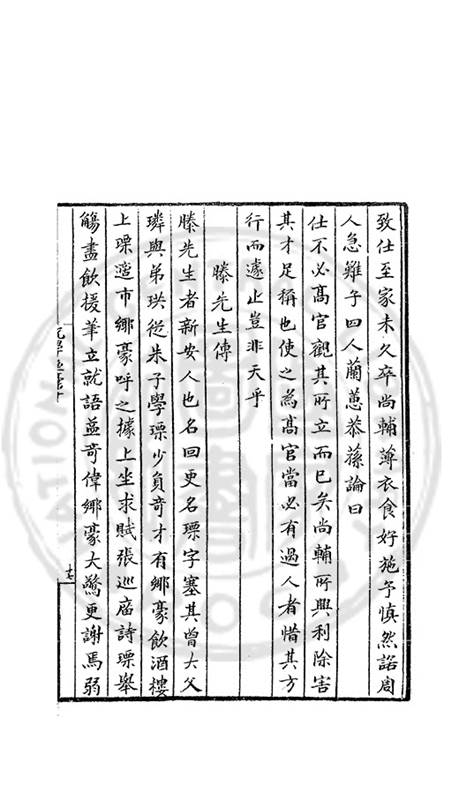 致仕至家未久卒尚輔薄衣食好施予慎然諾周
人急難子四人蘭蕙恭蓀論曰
仕不必髙官觀其所立而已矣尚輔所興利除害
其才足稱也使之為髙官當必有過人者惜其方
行而遽止豈非天乎
滕先生傳
滕先生者新安人也名回更名瑮字塞其曾大父
璘與弟珙從朱子學瑮少負竒才有鄉豪飲酒樓
上瑮適市鄉豪呼之據上坐求賦張巡庙詩瑮舉
觴盡飲援筆立就語益竒偉鄉豪大驚更謝焉弱